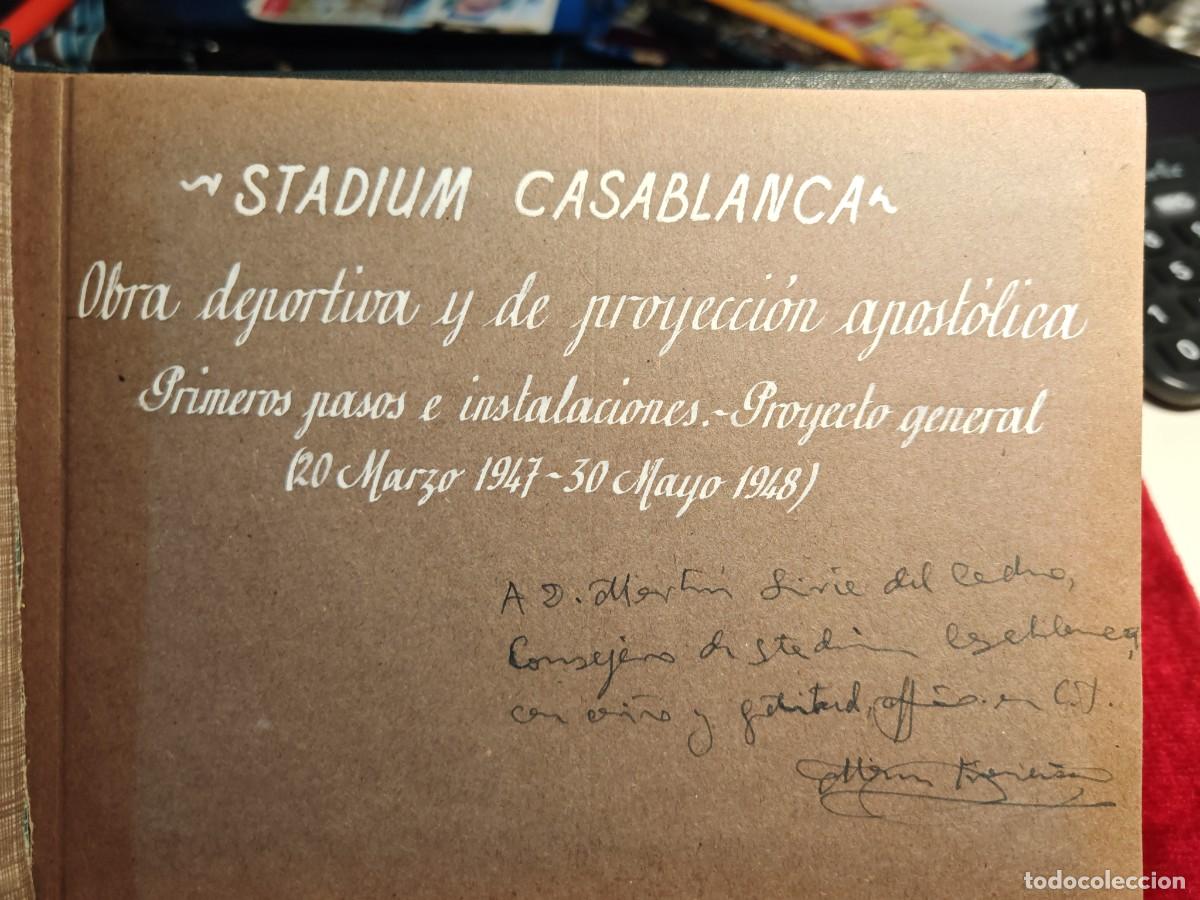 ~ STADIUM CASABLANCA ~
Obra deportiva y de proyección apostólica
Primeros pasos e instalaciones.-Proyecto general
(20 Marzo 1947-30 Mayo 1948)
A D. Martín del
Consejero de Stadium Casablanca,
con cariño y gratitud, en C.J.
todocoleccion